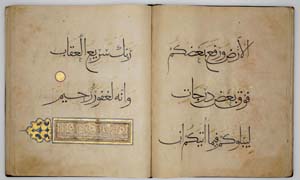 الأرض ورفع بعضكم
فوق بعض درجات
ليبلوكم في ما آتيكم إن
ربك سريع العقاب
وإنه لغفور رحيم